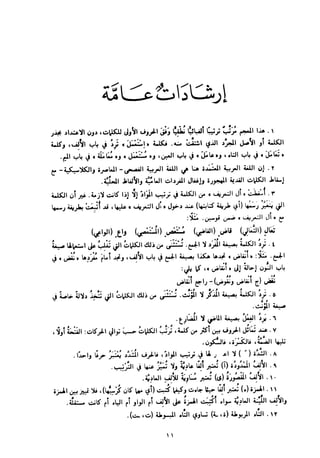 إرشادات عامة
١. هذا المعجم مُرتَّب ترتيبًا ألفبائيًّا نُطقيًّا وَفْقَ الحروف الأولى للكلمات، دون الاعتداد بجذر
الكلمة أو الأصل المجرّد الذي اشتُقَّتْ منه. فكلمة «اِسْتَعْمَلَ» تَرِدُ في باب الألف، وكلمة
«تَعامَلَ» في باب التاء، و«عامل» في باب العين، و«مُسْتَعْمَل» و«مُعامَلَة» في باب الميم.
٢. إن اللغة العربية المعتمدة هنا هي اللغة العربية الفصحى - المعاصرة والكلاسيكية - مع
إسقاط الكلمات القديمة المهجورة وإغفال المفردات العاميَّة والألفاظ المحلّية.
٣. أُسْقِطَتْ «أل التعريف» من الكلمة في ترتيب الموادّ إلّا إذا كانت لازمة. غير أن الكلمة
التي يتغيّر رسمها (أي طريقة كتابتها) عند دخول «أل التعريف» عليها، قد أُثْبِتَتْ بطريقة رسمها
مع «أل التعريف» ضمن قوسين. مثلًا:
تَعالٍ (التَّعالي) قاضٍ (القاضي) مُسْتَقْصٍ (المُسْتَقْصي) واعٍ (الواعي)
٤. تَرِدُ الكلمة بصيغة المُفْرَد لا الجمع. تُسْتَثْنى من ذلك الكلمات التي تَغْلِبُ على استعمالها صيغةُ
الجمع. مثلًا: «أنقاض» تجدها هكذا بصيغة الجمع في باب الألف، وتجد أمام مُفْرَدِها «نُقْض» في
باب النون إحالة إلى «أنقاض»، كما يلي:
نُقْض (ج أنقاض ونُقوض) - راجع أنقاض
٥. تَرِدُ الكلمة بصيغة المُذكَّر لا المُؤنَّث. تُسْتَثْنى من ذلك الكلمات التي تَتَّخِذُ دلالة خاصة في
صيغة المُؤنَّث.
٦. يَرِدُ الفِعْلُ بصيغة الماضي لا المُضارع.
٧. عند تَماثُلِ الحروف بين أكثر من كلمة، تُرَتَّبُ الكلمات حسب توالي الحركات: الفتحةُ أوَّلًا،
تليها الضمَّة، فالكسرة، فالسكون.
٨. الشَّدّة ( ّ ) لا في ترتيب الموادّ، فالحرف المُشَدَّد يُعْتَبَر حرفًا واحدًا.
٩. الألِف المَمْدودة (آ) تُعتبر ألفًا عاديّة ولا تَمييزَ عنها في التَّرتيب.
١٠. الألِفُ المَقْصورة (ى) تُعتبر مُساوِيَة للألِف العاديّة.
١١. الهمزة (ء) تُعتبر ألفًا حيثما جاءت وكيفما كُتبت (أي مهما كان كُرْسيُّها)، فلا تمييز بين الهمزة
والألف الليِّنة العاديّة سواء أَكُتِبَت الهمزةُ على الألف أم الواو أم الياء أم كانت مستقلّة.
١٢. التَّاء المربوطة (ة، ـة) تساوي التَّاء المبسوطة (ت، ـت).
١١